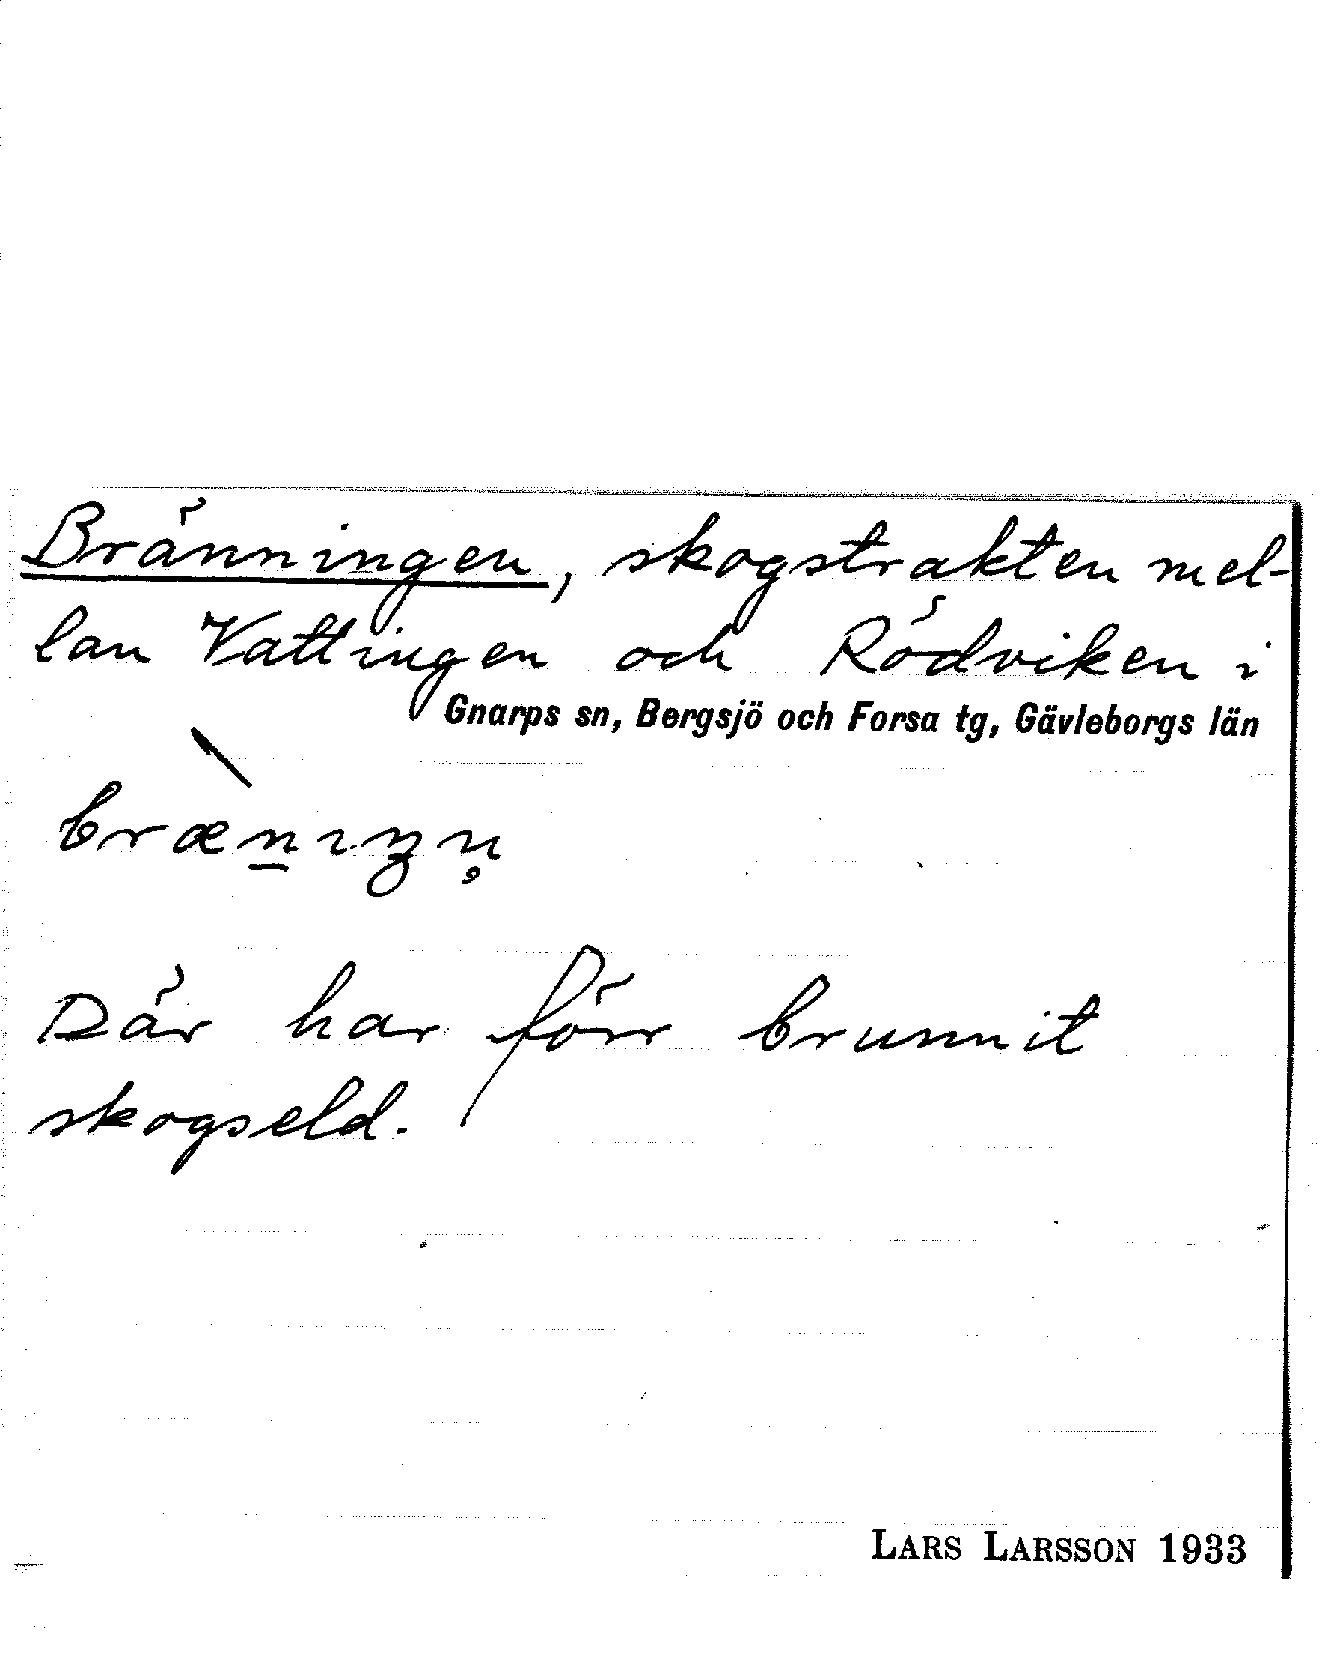 Bränningen, skogstrakten mel-
lan Vattingen och Rödviken i
Gnarps sn, Bergsjö och Forsa tg, Gävleborgs län
bræ̀n̲ıŋn̥
Där har förr brunnit
skogseld.
LARS LARSSON 1933